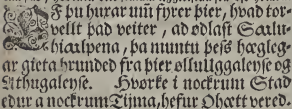 Ef þu huxar um̃ fyrer þier, hvad tor-
vellt þad veiter, ad odlast Sælu-
hialpena, þa muntu þess hægleg-
ar gieta hrunded fra þier øllu Uggaleyse og
Athugaleyse. Hvorke i nockrum Stad
edur a nockrum Tijma, hefur Ohætt vered